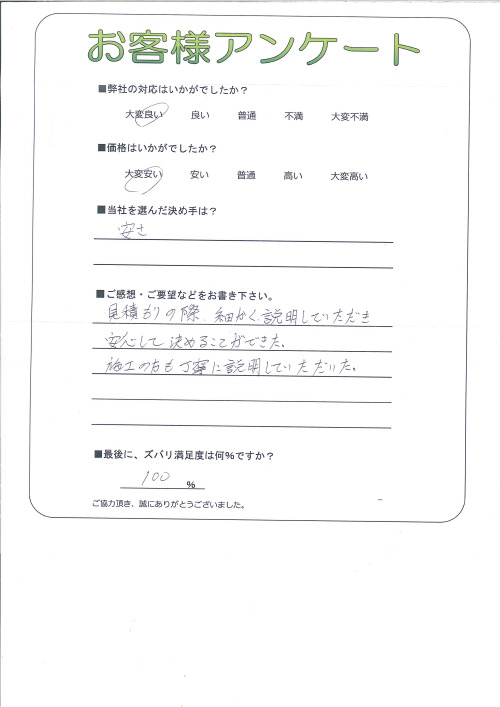 お客様アンケート
■弊社の対応はいかがでしたか？
大変良い 良い 普通 不満 大変不満
■価格はいかがでしたか？
大変安い 安い 普通 高い 大変高い
■当社を選んだ決め手は？
安さ
■ご感想・ご要望などをお書き下さい。
見積もりの際、細かく説明していただき
安心して決めることができた。
施工の方も丁寧に説明していただいた。
■最後に、ズバリ満足度は何％ですか？
100 ％
ご協力頂き、誠にありがとうございました。